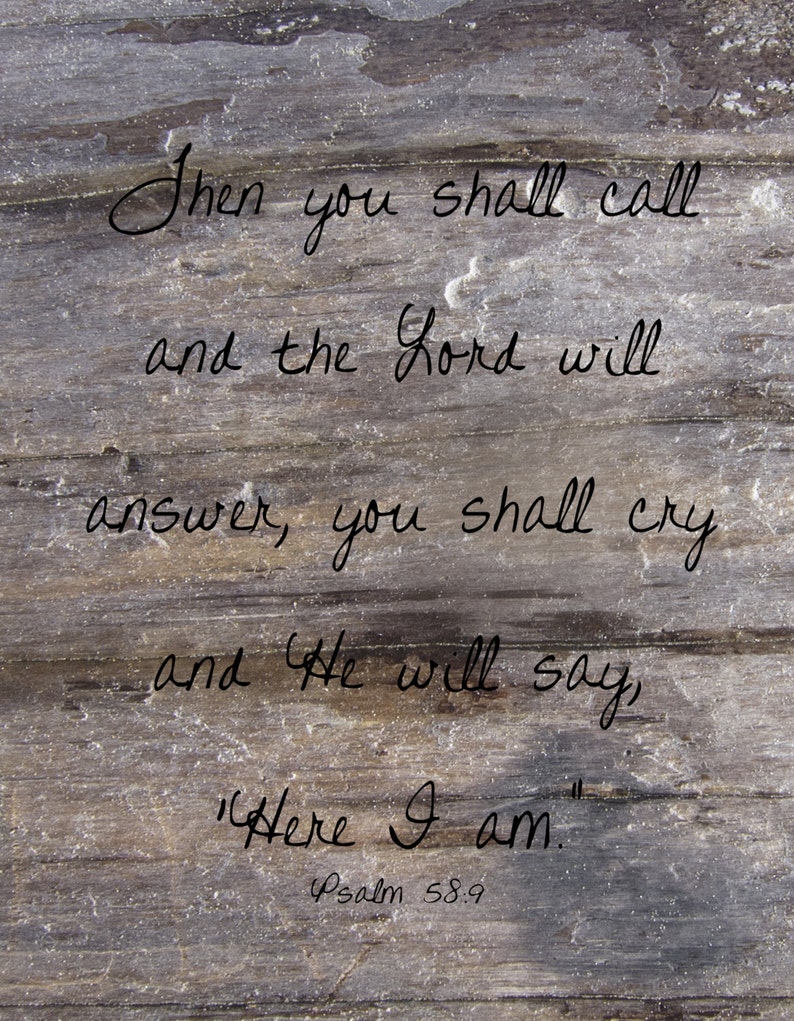 Then you shall call
and the Lord will
answer, you shall cry
and He will say,
"Here I am."
Psalm 58:9